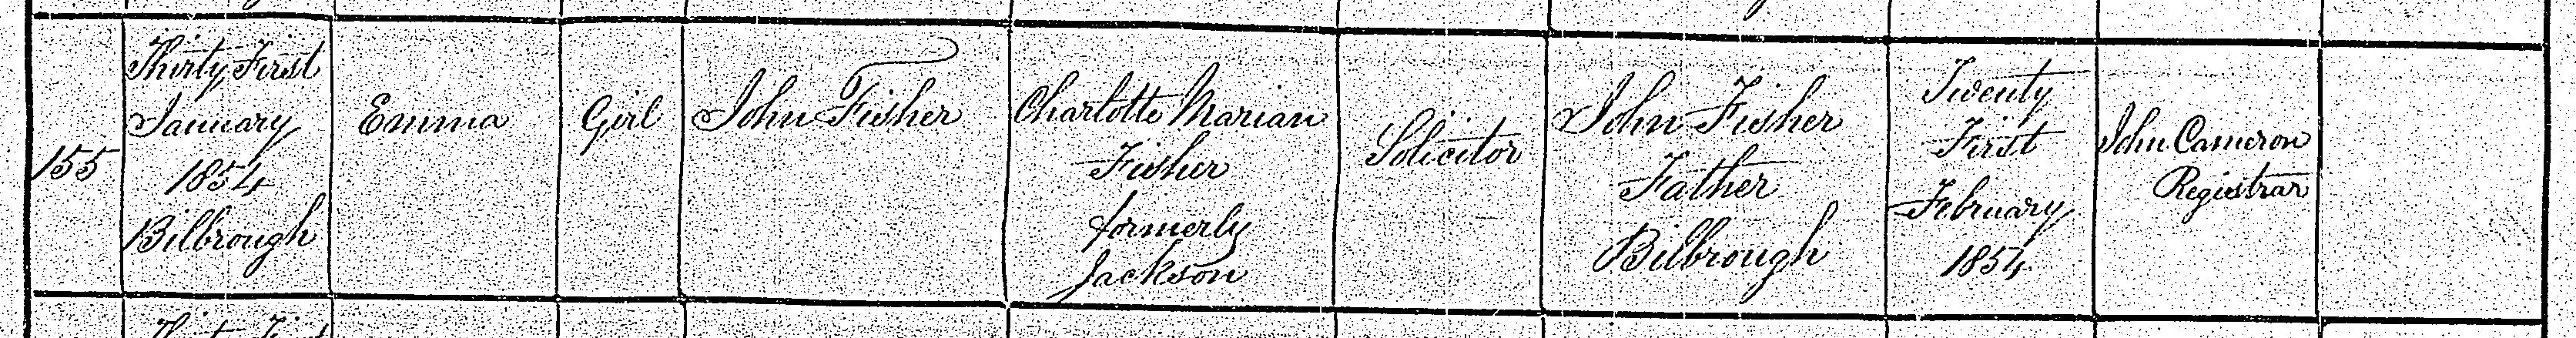 155
Thirty First
January
1854
Bilbrough
Emma
Girl
John Fisher
Charlotte Marian
Fisher
formerly
Jackson
Solicitor
John Fisher
Father
Bilbrough
Twenty
First
February
1854
John Cameron
Registrar